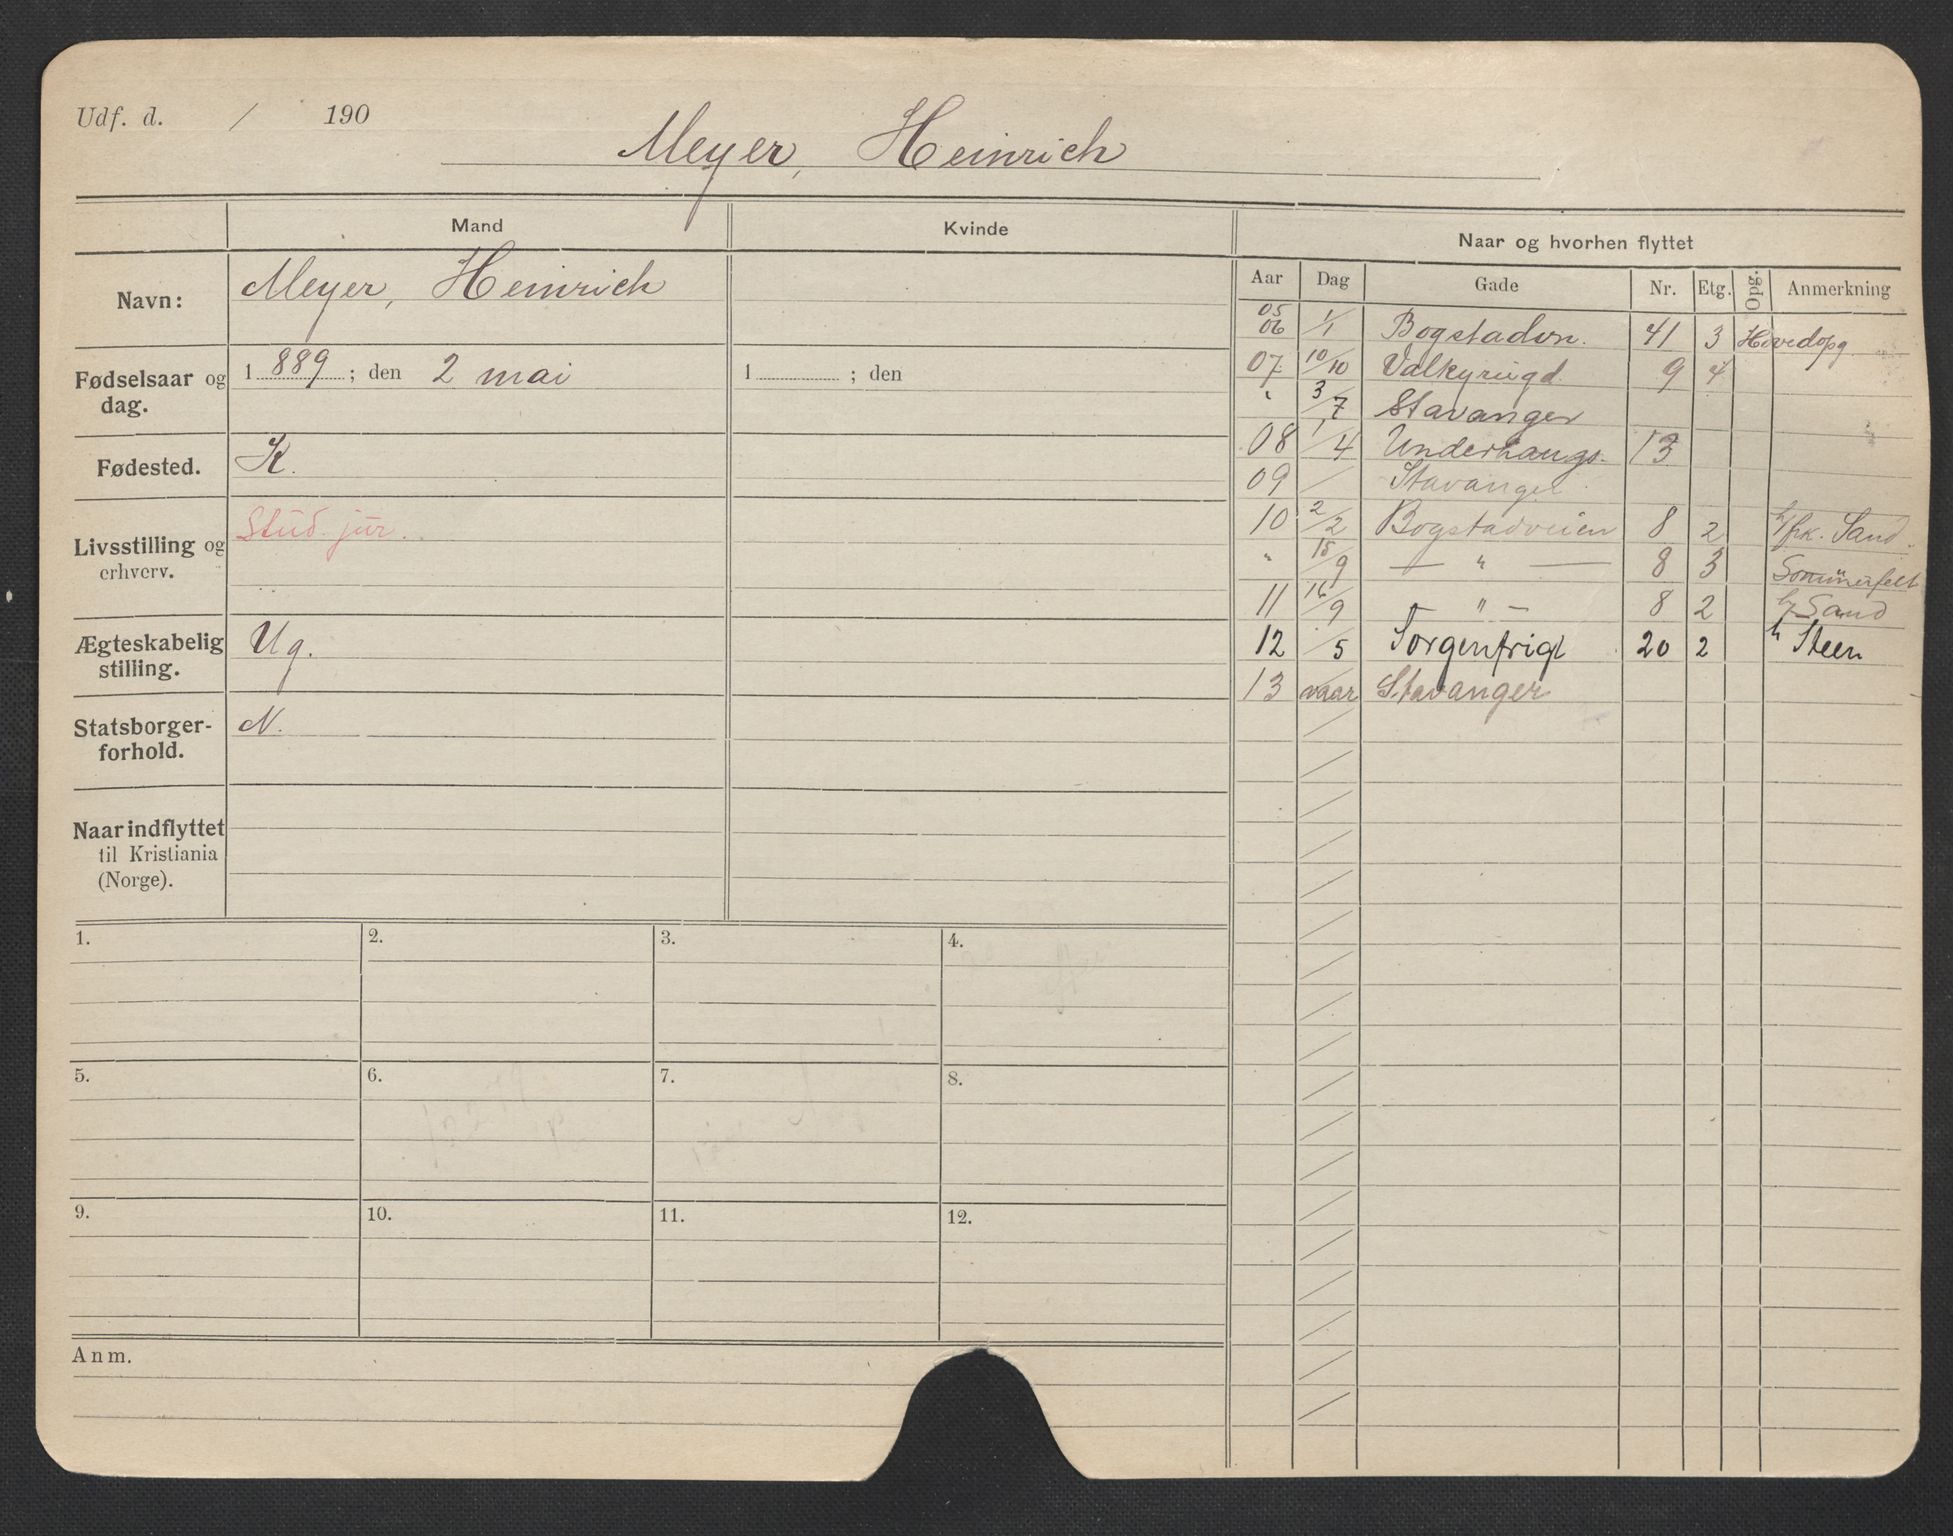 Udf. d. / 190
Meyer, Heinrich
Mand
Kvinde
Naar og hvorhen flyttet
Navn:
Meyer, Heinrich
Fødselsaar og dag.
1 889 ; den 2 mai
1 ; den
Fødested.
K.
Livsstilling og
erhverv.
Stud. jur.
Ægteskabelig
stilling.
Ug.
Statsborger-
forhold.
N.
Naar indflyttet
til Kristiania
(Norge).
Aar Dag Gade Nr. Etg. Opg. Anmerkning
05
06 1/1 Bogstadvn. 41 3 Hovedopg.
07 10/10 Valkyriegd. 9 4
" 3/7 Stavanger
08 1/4 Underhaugs. 13
09 / Stavanger
10 2/2 Bogstadveien 8 2 h/frk. Sand.
" 15/9 — " — 8 3 Sommerfelt
11 16/9 — " — 8 2 h/Sand
12 /5 Sorgenfrigt 20 2 h Steen
13 vaar Stavanger
1. 2. 3. 4.
5. 6. 7. 8.
9. 10. 11. 12.
Anm.